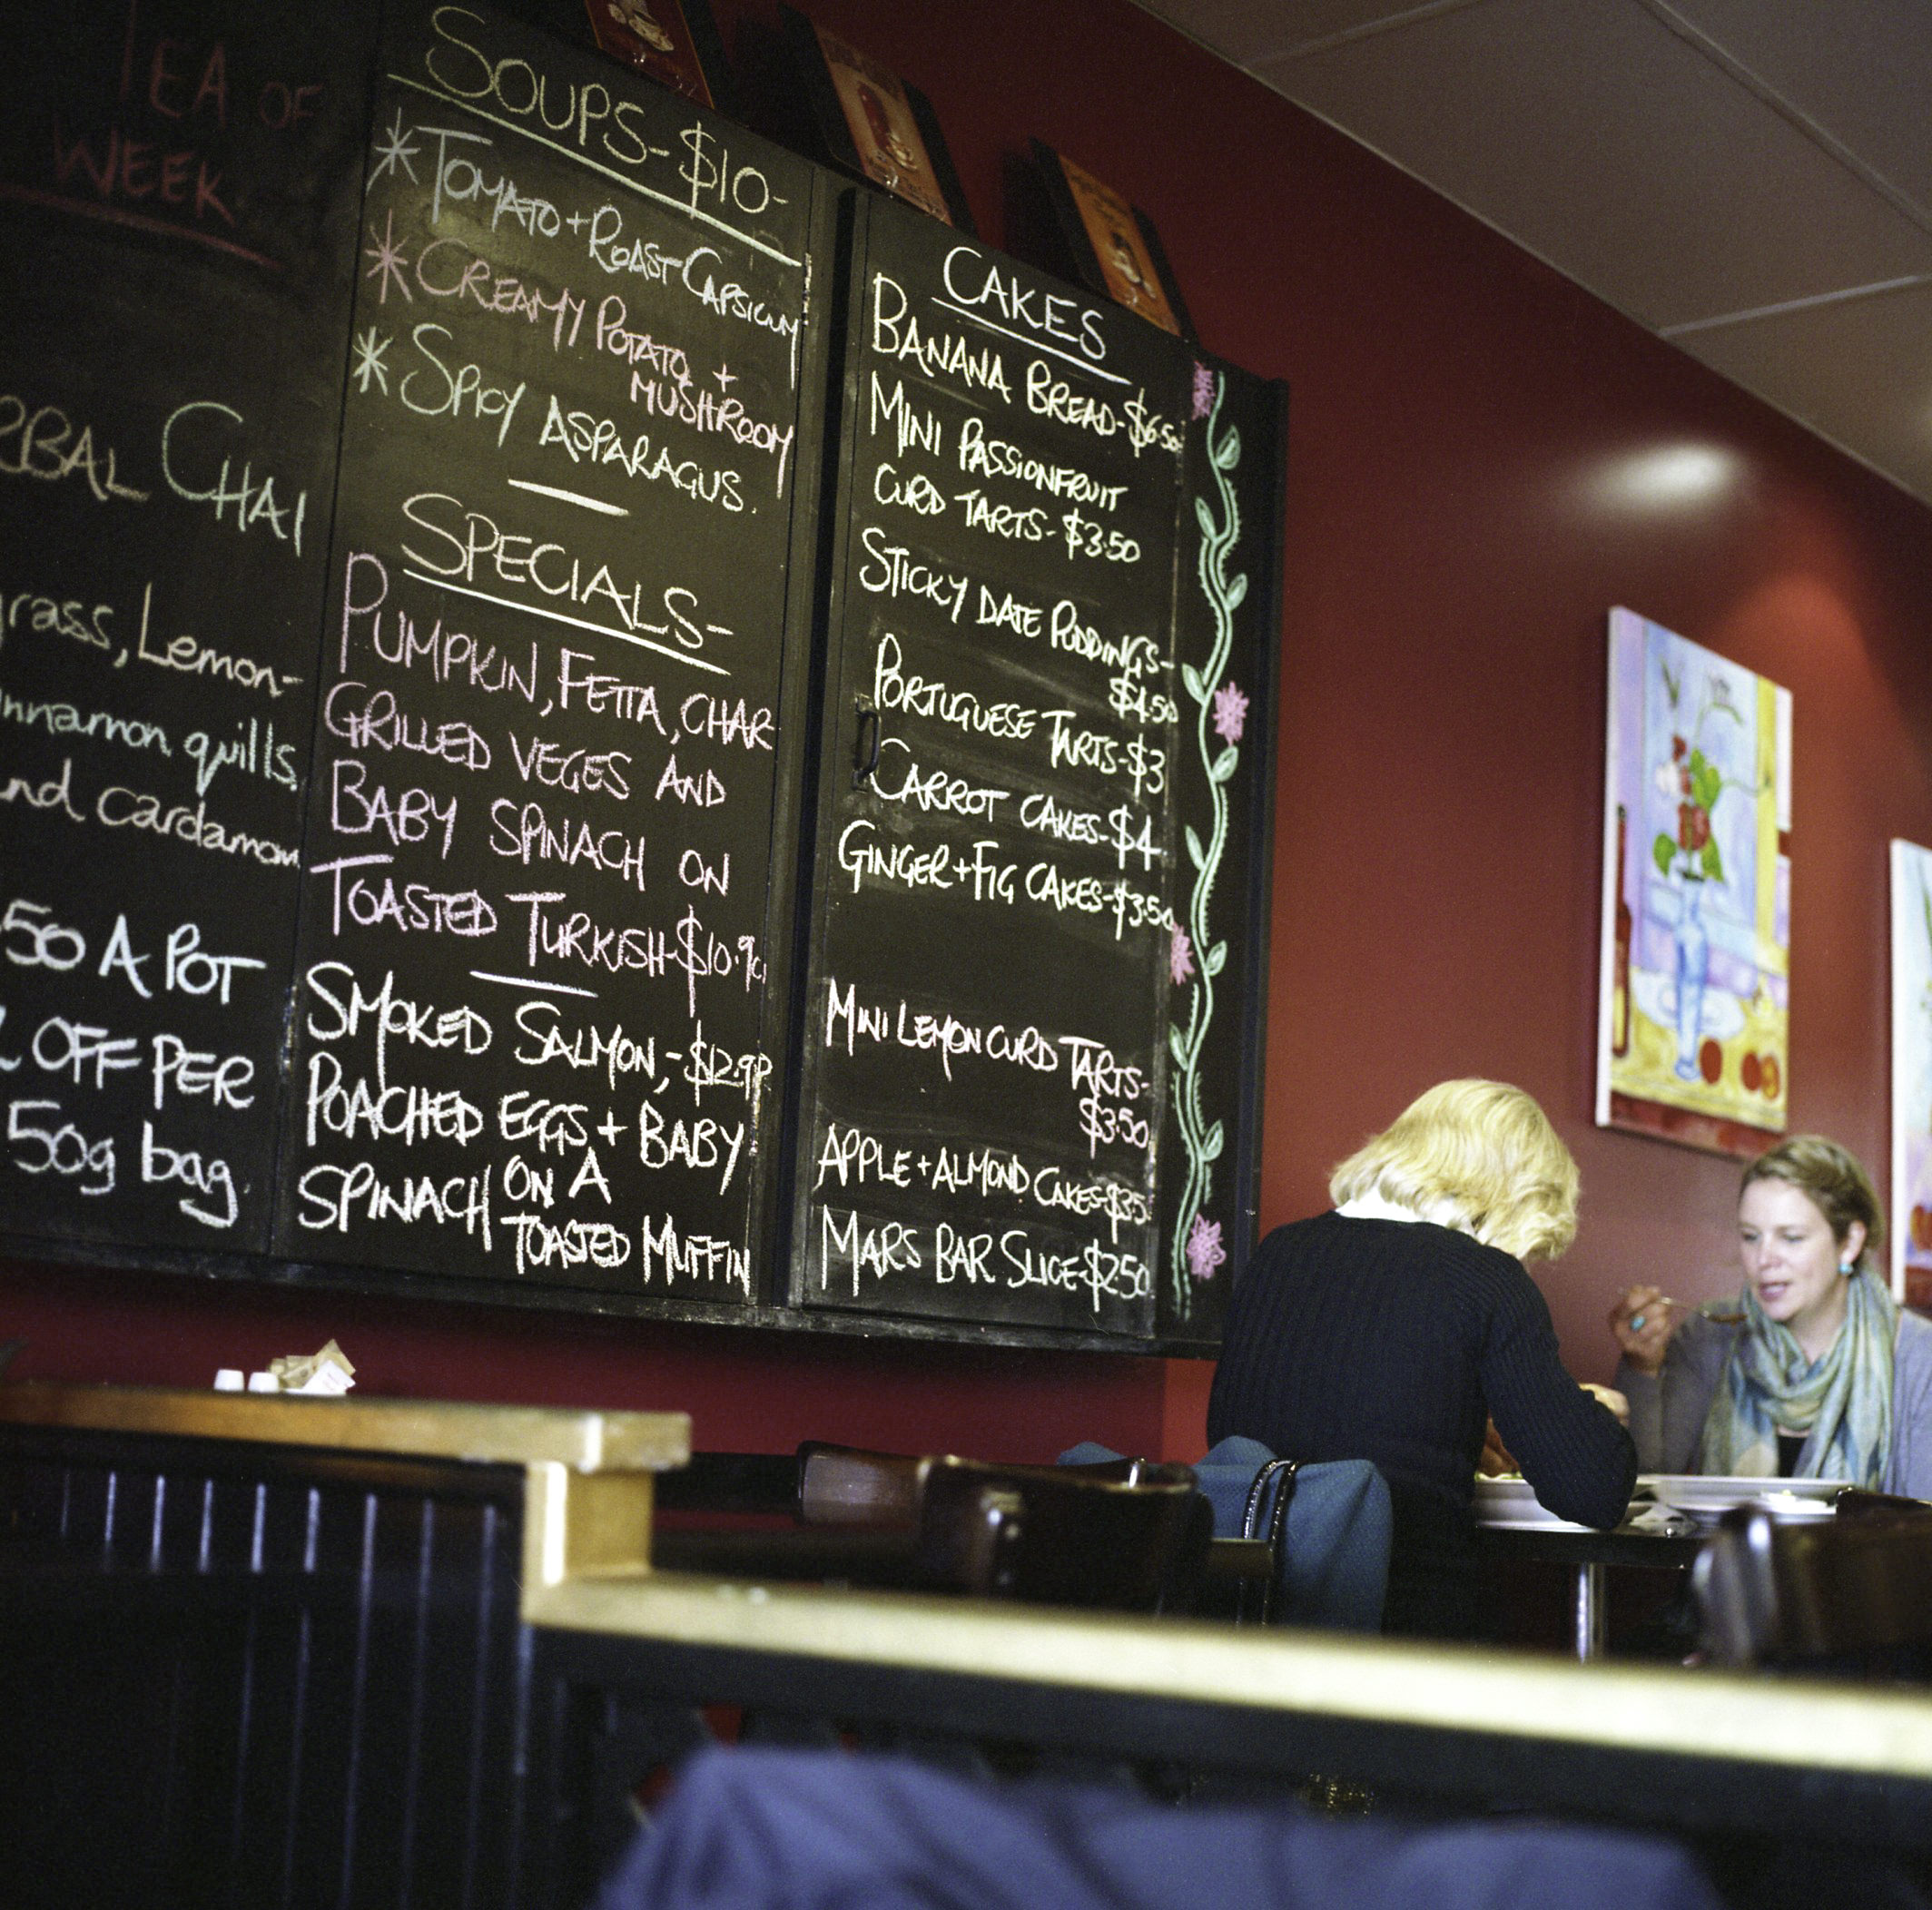 TEA OF
WEEK
CHAI
Lemon-
quills,
cardamon
50 A POT
OFF PER
50g bag.
SOUPS-$10-
*TOMATO+ROAST CAPSICUM
*CREAMY POTATO +
MUSHROOM
*SPICY ASPARAGUS.
SPECIALS-
PUMPKIN, FETTA, CHAR
GRILLED VEGES AND
BABY SPINACH ON
TOASTED TURKISH-$10.90
SMOKED SALMON,-$12.90
POACHED EGGS + BABY
SPINACH ON A
TOASTED MUFFIN
CAKES
BANANA BREAD-$6.50
MINI PASSIONFRUIT
CURD TARTS-$3.50
STICKY DATE PUDDINGS-
$4.50
PORTUGUESE TARTS-$3
CARROT CAKES-$4
GINGER+FIG CAKES-$3.50
MINI LEMON CURD TARTS-
$3.50
APPLE+ALMOND CAKES-$3.5
MARS BAR SLICE-$2.50